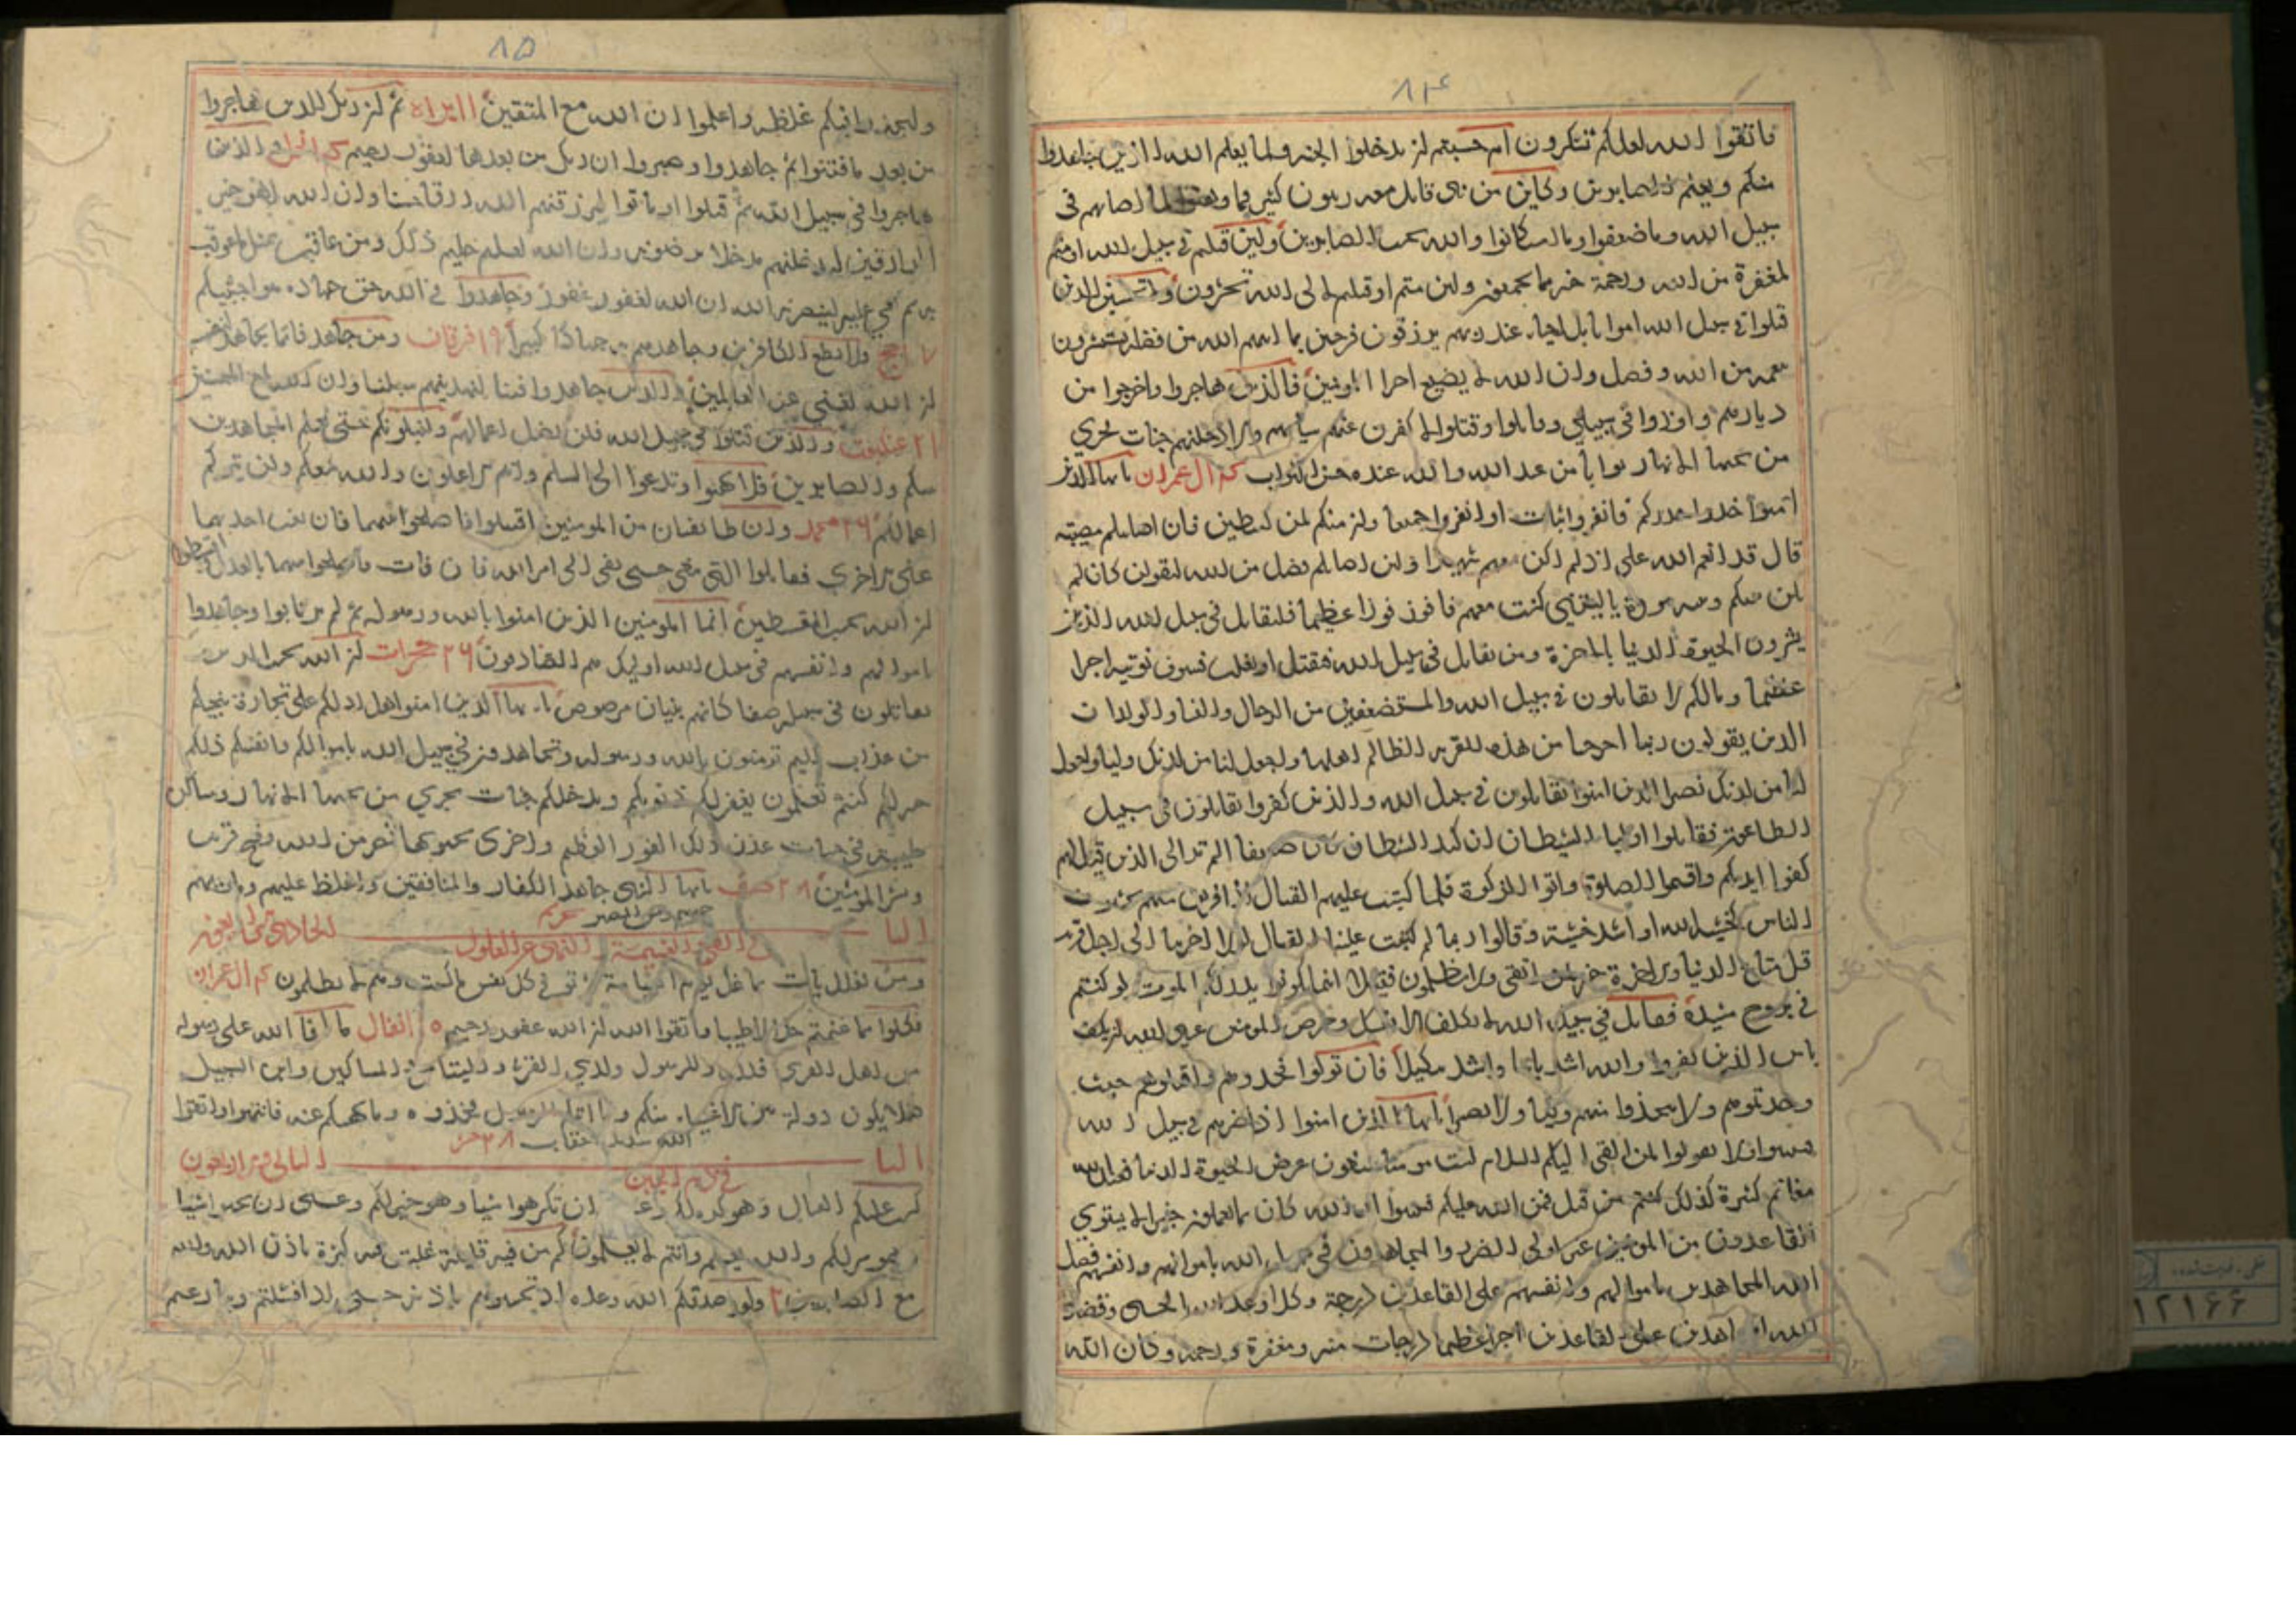 ٨٤
فاتقوا الله لعلكم تشكرون ام حسبتم ان تدخلوا الجنه ولما يعلم الله الذين جاهدوا
منكم ويعلم الصابرين وكاين من نبي قاتل معه ربيون كثير فما وهنوا لما اصابهم في
سبيل الله وما ضعفوا وما استكانوا والله يحب الصابرين ولين قتلتم في سبيل الله او متم
لمغفرة من الله ورحمة خير مما يجمعون ولين متم او قتلتم لالى الله تحشرون ولا تحسبن الذين
قتلوا في سبيل الله امواتا بل احياء عند ربهم يرزقون فرحين بما اتيهم الله من فضله يستبشرون
بنعمه من الله وفضل وان الله لا يضيع اجر المومنين فالذين هاجروا واخرجوا من
ديارهم واوذوا في سبيلي وقاتلوا وقتلوا لاكفرن عنهم سياتهم ولادخلنهم جنات تجري
من تحتها الانهار ثوابا من عند الله والله عنده حسن الثواب ال عمران يا ايها الذين
امنوا خذوا حذركم فانفروا ثبات او انفروا جميعا وان منكم لمن ليبطين فان اصابتكم مصيبة
قال قد انعم الله علي اذ لم اكن معهم شهيدا ولين اصابكم فضل من الله ليقولن كان لم
تكن بينكم وبينه مودة يا ليتني كنت معهم فافوز فوزا عظيما فليقاتل في سبيل الله الذين
يشرون الحيوة الدنيا بالاخرة ومن يقاتل في سبيل الله فيقتل او يغلب فسوف نوتيه اجرا
عظيما ومالكم لا تقاتلون في سبيل الله والمستضعفين من الرجال والنساء والولدان
الذين يقولون ربنا اخرجنا من هذه القرية الظالم اهلها واجعل لنا من لدنك وليا واجعل
لنا من لدنك نصيرا الذين امنوا يقاتلون في سبيل الله والذين كفروا يقاتلون في سبيل
الطاغوت فقاتلوا اولياء الشيطان ان كيد الشيطان كان ضعيفا الم تر الى الذين قيل لهم
كفوا ايديكم واقيموا الصلوة واتوا الزكوة فلما كتبت عليهم القتال اذا فريق منهم يخشون
الناس كخشية الله او اشد خشية وقالوا ربنا لم كتبت علينا القتال لولا اخرتنا الى اجل قريب
قل متاع الدنيا والاخرة خير لمن اتقى ولا تظلمون فتيلا اينما تكونوا يدرككم الموت ولو كنتم
في بروج مشيدة فقاتل في سبيل الله لا تكلف الا نفسك وحرض المومنين عسى الله ان يكف
باس الذين كفروا والله اشد باسا واشد تنكيلا فان تولوا فخذوهم واقتلوهم حيث
وجدتموهم ولا تتخذوا منهم وليا ولا نصيرا يا ايها الذين امنوا اذا ضربتم في سبيل الله
فتبينوا ولا تقولوا لمن القى اليكم السلام لست مومنا تبتغون عرض الحيوة الدنيا فعند الله
مغانم كثيرة كذلك كنتم من قبل فمن الله عليكم فتبينوا ان الله كان بما تعملون خبيرا لا يستوي
القاعدون من المومنين غير اولي الضرر والمجاهدون في سبيل الله باموالهم وانفسهم فضل
الله المجاهدين باموالهم وانفسهم على القاعدين درجة وكلا وعد الله الحسنى وفضل
الله المجاهدين على القاعدين اجرا عظيما درجات منه ومغفرة ورحمة وكان الله
٨٥
وليجدوا فيكم غلظه واعلموا ان الله مع المتقين براه ثم ان ربك للذين هاجروا
من بعد ما فتنوا ثم جاهدوا وصبروا ان ربك من بعدها لغفور رحيم والذين
هاجروا في سبيل الله ثم قتلوا او ماتوا ليرزقنهم الله رزقا حسنا وان الله لهو خير
الرازقين ليدخلنهم مدخلا يرضونه وان الله لعليم حليم ذلك ومن عاقب بمثل ما عوقب
به ثم بغي عليه لينصرنه الله ان الله لعفو غفور وجاهدوا في الله حق جهاده هو اجتبيكم
حج ولا تطع الكافرين وجاهدهم به جهادا كبيرا ١٩ فرقان ومن جاهد فانما يجاهد لنفسه
ان الله لغني عن العالمين والذين جاهدوا فينا لنهدينهم سبلنا وان الله لمع المحسنين
٢١ عنكبوت والذين قتلوا في سبيل الله فلن يضل اعمالهم ولنبلونكم حتى نعلم المجاهدين
منكم والصابرين فلا تهنوا وتدعوا الى السلم وانتم الاعلون والله معكم ولن يتركم
اعمالكم ٢٦ محمد وان طايفتان من المومنين اقتتلوا فاصلحوا بينهما فان بغت احديهما
على الاخرى فقاتلوا التي تبغي حتى تفي الى امر الله فان فات فاصلحوا بينهما بالعدل واقسطوا
ان الله يحب المقسطين انما المومنين الذين امنوا بالله ورسوله ثم لم يرتابوا وجاهدوا
باموالهم وانفسهم في سبيل الله اوليك هم الصادقون ٢٦ حجرات ان الله يحب الذين
يقاتلون في سبيله صفا كانهم بنيان مرصوص يا ايها الذين امنوا هل ادلكم على تجارة تنجيكم
من عذاب اليم تومنون بالله ورسوله وتجاهدون في سبيل الله باموالكم وانفسكم ذلكم
خير لكم كنتم تعلمون يغفر لكم ذنوبكم ويدخلكم جنات تجري من تحتها الانهار ومساكن
طيبة في جنات عدن ذلك الفوز العظيم واخرى تحبونها نصر من الله وفتح قريب
وبشر المومنين ٢٨ صف يا ايها النبي جاهد الكفار والمنافقين واغلظ عليهم وماويهم
جهنم وبئس المصير تحريم
الباب الحادي والاربعون
في الفي والغنيمة والنهي عن الغلول
ومن يغلل يات بما غل يوم القيامة ثم توفى كل نفس ما كسبت وهم لا يظلمون ال عمران
فكلوا مما غنمتم حلالا طيبا واتقوا الله ان الله غفور رحيم انفال ما افا الله على رسوله
من اهل القرى فلله وللرسول ولذي القربى واليتامى والمساكين وابن السبيل
كيلا يكون دولة بين الاغنياء منكم وما اتيكم الرسول فخذوه وما نهيكم عنه فانتهوا واتقوا
الله شديد العقاب ٢٨ حشر
الباب الثاني والاربعون
كتب عليكم القتال وهو كره لكم وعسى ان تكرهوا شيا وهو خير لكم وعسى ان تحبوا شيا
وهو شر لكم والله يعلم وانتم لا تعلمون كم من فية قليلة غلبت فية كثيرة باذن الله والله
مع الصابرين ولقد صدقكم الله وعده اذ تحسونهم باذنه حتى اذا فشلتم وتنازعتم
١٢١٦٦